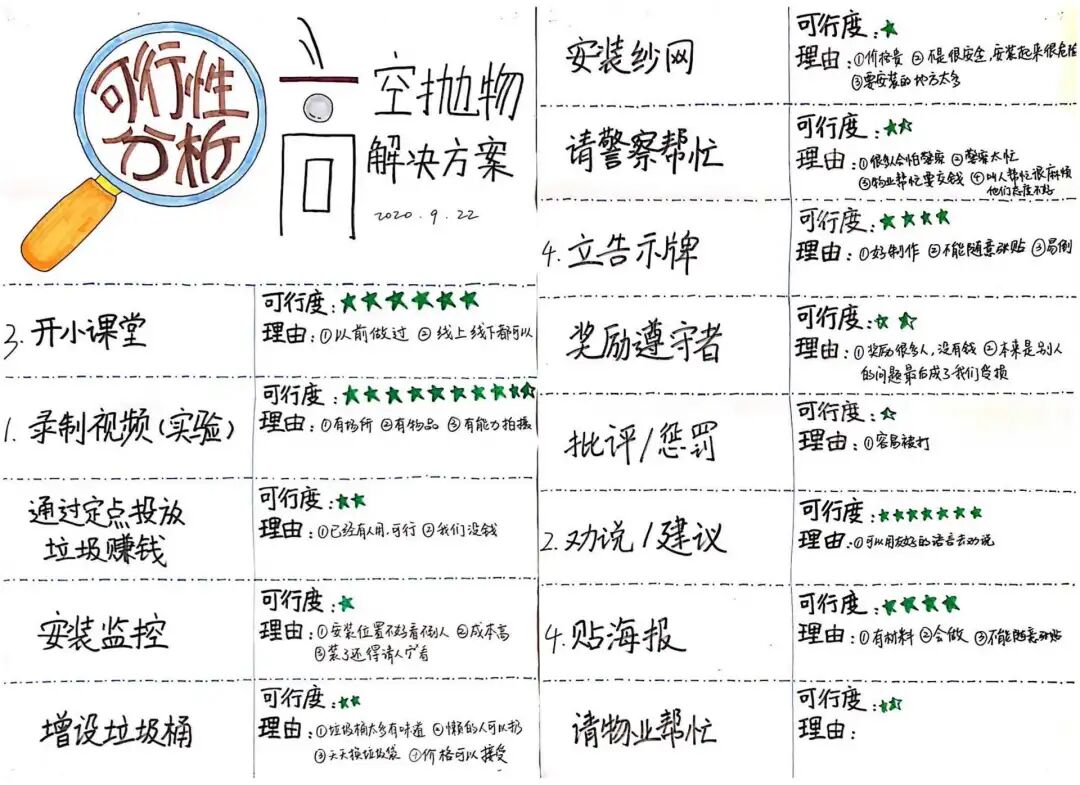 可行性
分析
高空抛物
解决方案
2020.9.22
3. 开小课堂
可行度:★★★★★★
理由:①以前做过 ②线上线下都可以
1. 录制视频(实验)
可行度:★★★★★★★★★
理由:①有场所 ②有物品 ③有能力拍摄
通过定点投放
垃圾赚钱
可行度:★★
理由:①已经有人用,可行 ②我们没钱
安装监控
可行度:★
理由:①安装位置不好看到人 ②成本高
③装了还得请人守着
增设垃圾桶
可行度:★★
理由:①垃圾桶太多有味道 ②懒的人可以扔
③天天换垃圾袋 ④价格可以接受
安装纱网
可行度:★
理由:①价格贵 ②不是很安全,安装起来很危险
③要安装的地方太多
请警察帮忙
可行度:★★
理由:①很多人会怕警察 ②警察太忙
③物业帮忙要交钱 ④叫人帮忙很麻烦
他们态度不好
4. 立告示牌
可行度:★★★★
理由:①好制作 ②不能随意张贴 ③易倒
奖励遵守者
可行度:★★
理由:①奖励很多人,没有钱 ②本来是别人
的问题最后成了我们受损
批评/惩罚
可行度:★
理由:①容易被打
2. 劝说/建议
可行度:★★★★★★★
理由:①可以用友好的语言去劝说
4. 贴海报
可行度:★★★★
理由:①有材料 ②会做 ③不能随意张贴
请物业帮忙
可行度:★★
理由: